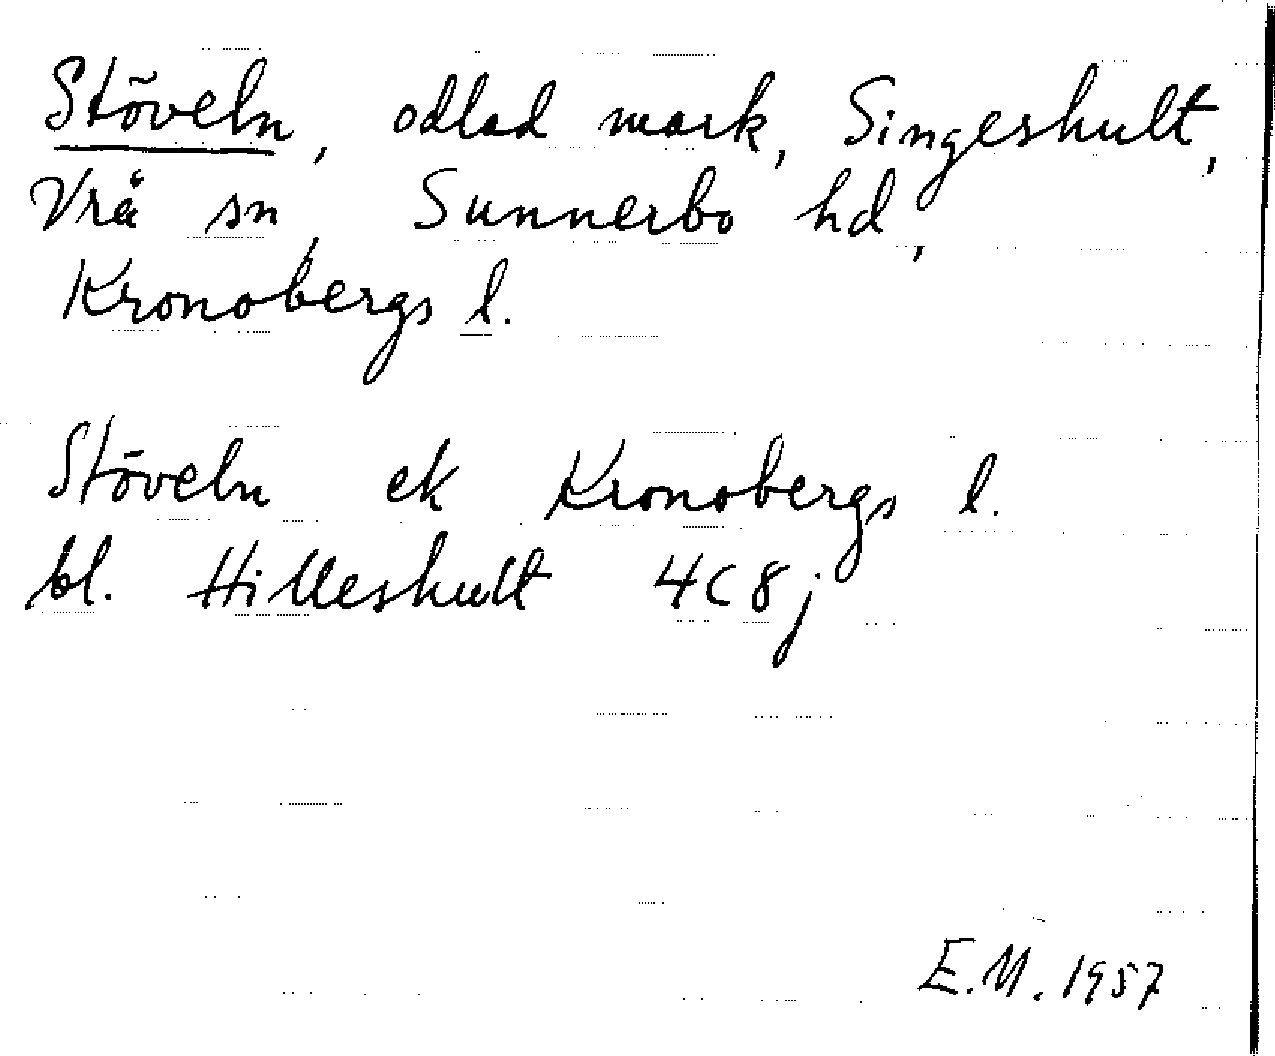 Stöveln, odlad mark, Singeshult,
Vrå sn, Sunnerbo hd,
Kronobergs l.
Stöveln ek Kronobergs l.
bl. Hilleshult 4C8j
E.M. 1957